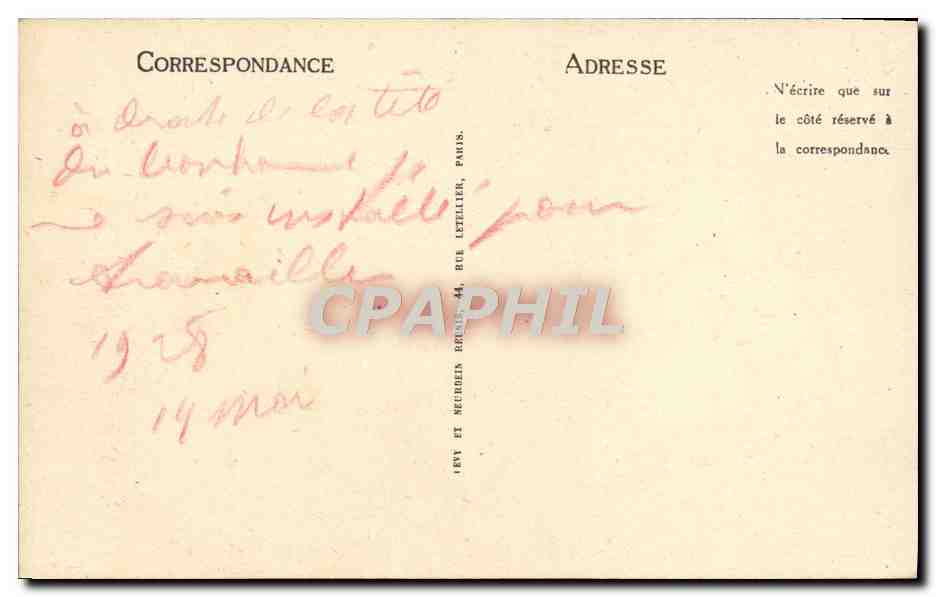 CORRESPONDANCE
ADRESSE
N'écrire que sur
le côté réservé à
la correspondance
à droite de la tête
du bonhomme je
me suis installé pour
travailler
1928
14 mai
LÉVY ET NEURDEIN RÉUNIS, 44, RUE LETELLIER, PARIS.
CPAPHIL